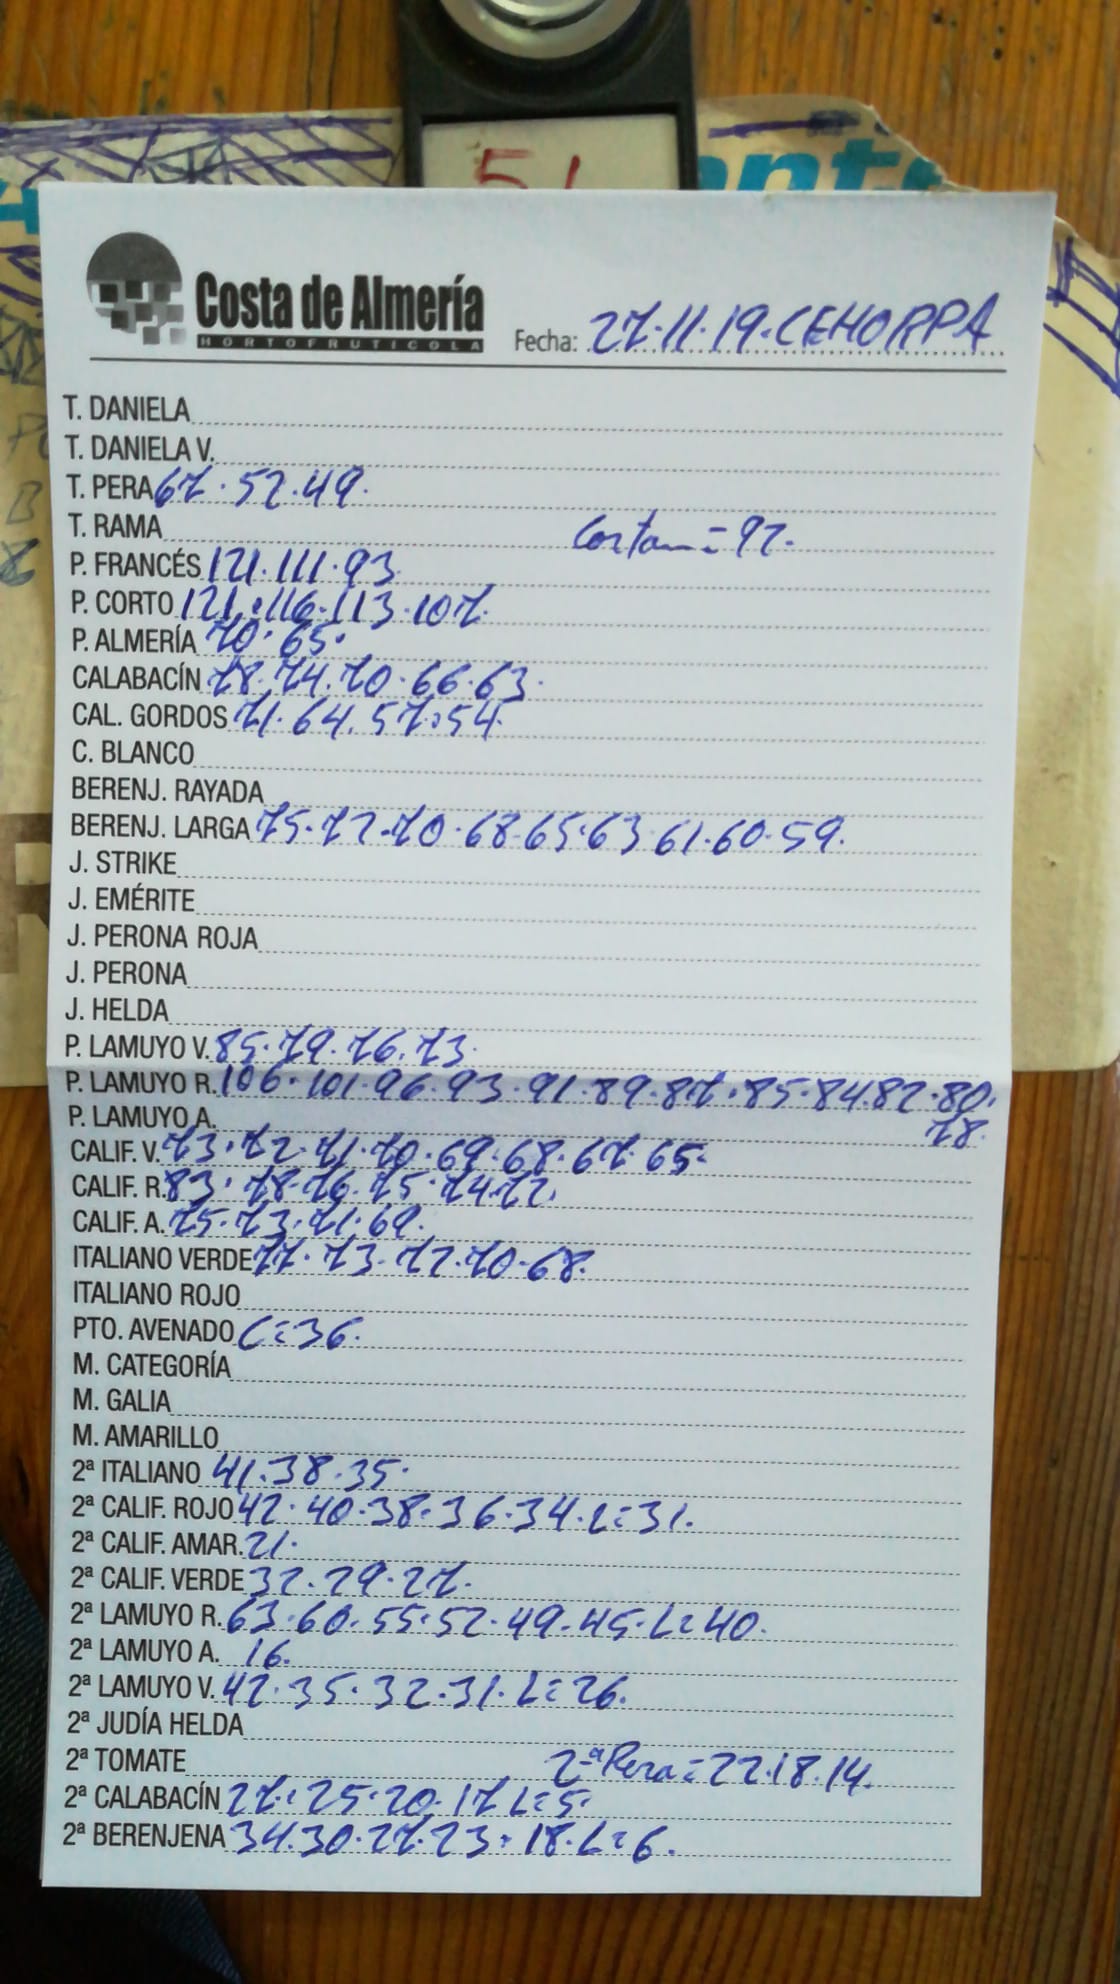 51
Costa de Almería
HORTOFRUTICOLA
Fecha: 27.11.19.CEHORPA
T. DANIELA
T. DANIELA V.
T. PERA 67.52.49.
T. RAMA
P. FRANCÉS 121.111.93
P. CORTO 121.116.113.107.
P. ALMERÍA 70.65.
CALABACÍN 78.74.70.66.63.
CAL. GORDOS 71.64.57.54.
C. BLANCO
BERENJ. RAYADA
BERENJ. LARGA 75.72.70.68.65.63.61.60.59.
J. STRIKE
J. EMÉRITE
J. PERONA ROJA
J. PERONA
J. HELDA
P. LAMUYO V. 85.79.76.73.
P. LAMUYO R. 106.101.96.93.91.89.87.85.84.82.80.
78.
P. LAMUYO A.
CALIF. V. 73.72.71.70.69.68.67.65.
CALIF. R. 83.78.76.75.74.72.
CALIF. A. 75.73.71.69.
ITALIANO VERDE 77.73.72.70.68.
ITALIANO ROJO
PTO. AVENADO C=36.
M. CATEGORÍA
M. GALIA
M. AMARILLO
2ª ITALIANO 41.38.35.
2ª CALIF. ROJO 42.40.38.36.34.L=31.
2ª CALIF. AMAR. 21.
2ª CALIF. VERDE 32.29.27.
2ª LAMUYO R. 63.60.55.52.49.45.L=40.
2ª LAMUYO A. 16.
2ª LAMUYO V. 42.35.32.31.L=26.
2ª JUDÍA HELDA
2ª TOMATE 2ª Pera=22.18.14.
2ª CALABACÍN 27.25.20.17 L=5.
2ª BERENJENA 34.30.27.23.18.L=6.